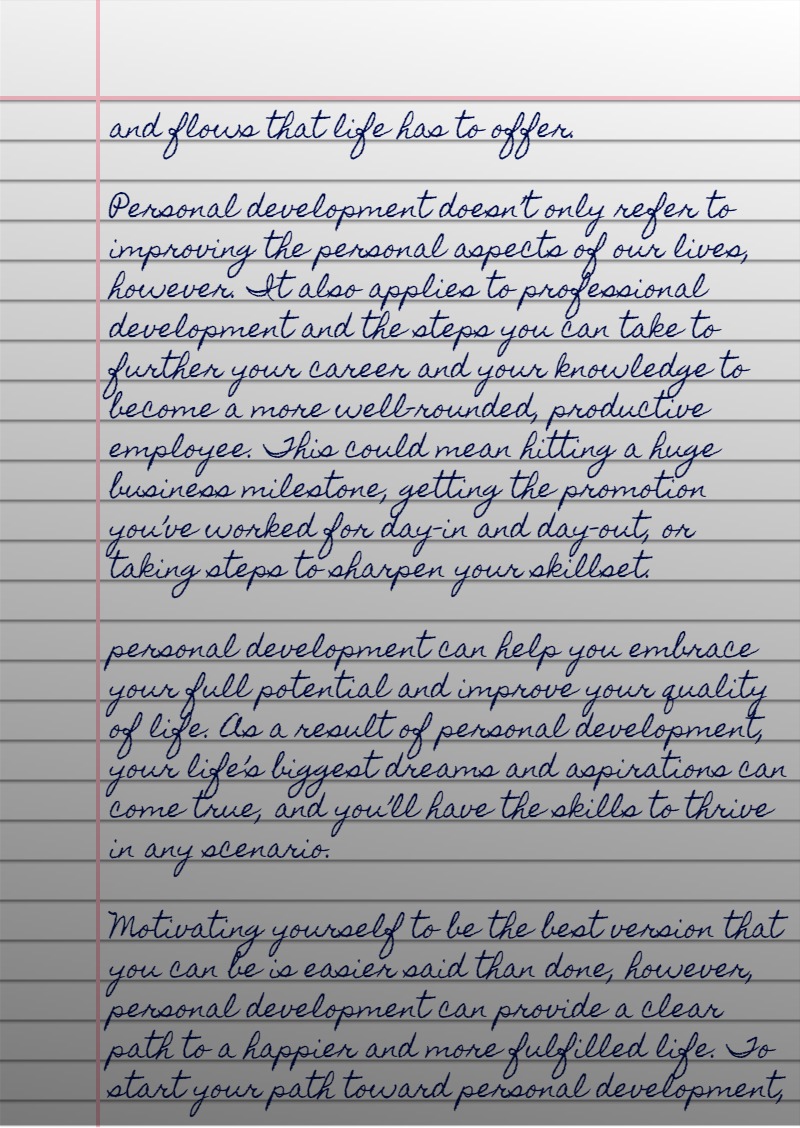 and flows that life has to offer.
Personal development doesn't only refer to
improving the personal aspects of our lives,
however. It also applies to professional
development and the steps you can take to
further your career and your knowledge to
become a more well-rounded, productive
employee. This could mean hitting a huge
business milestone, getting the promotion
you've worked for day-in and day-out, or
taking steps to sharpen your skillset.
personal development can help you embrace
your full potential and improve your quality
of life. As a result of personal development,
your life's biggest dreams and aspirations can
come true, and you'll have the skills to thrive
in any scenario.
Motivating yourself to be the best version that
you can be is easier said than done, however,
personal development can provide a clear
path to a happier and more fulfilled life. To
start your path toward personal development,